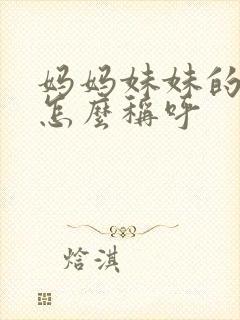 妈妈妹妹的
怎麼稱呼
焓淇